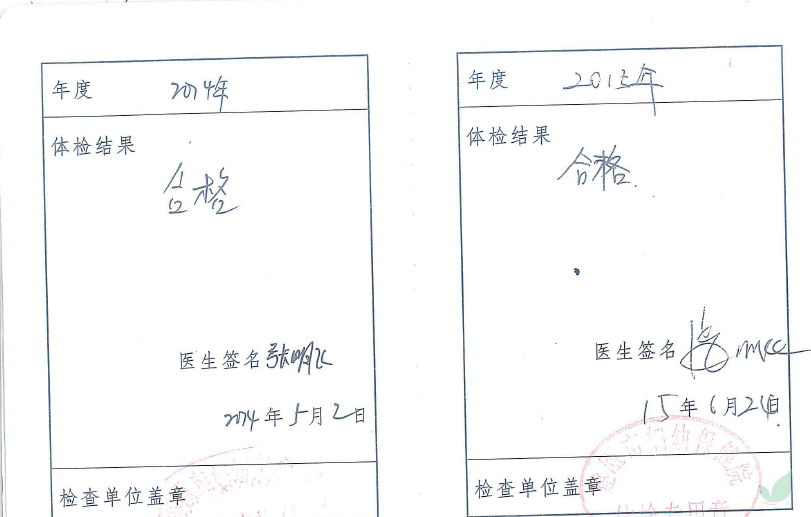 年度 2014年
体检结果
合格
医生签名
2014年5月2日
检查单位盖章
年度 2015年
体检结果
合格
医生签名
15年6月24日
市妇幼保健院
体检专用章
检查单位盖章